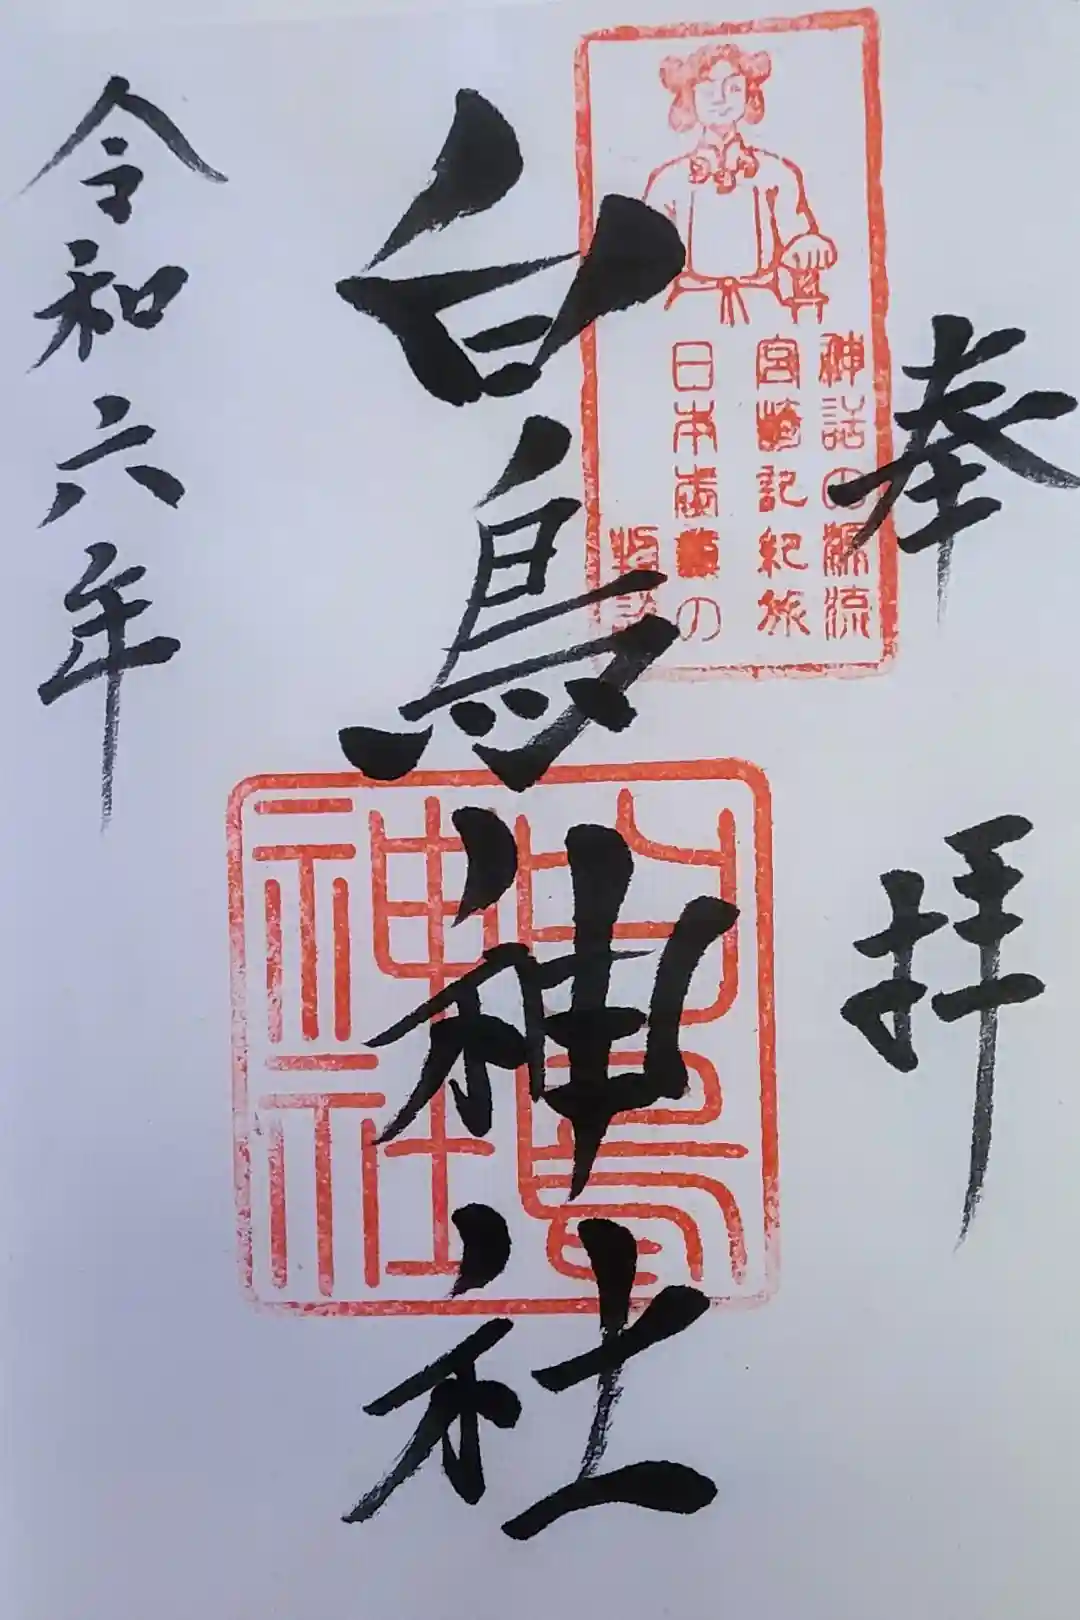 奉拝
神話の源流
宮崎記紀旅
日本の
白鳥神社
白鳥
神社
令和六年